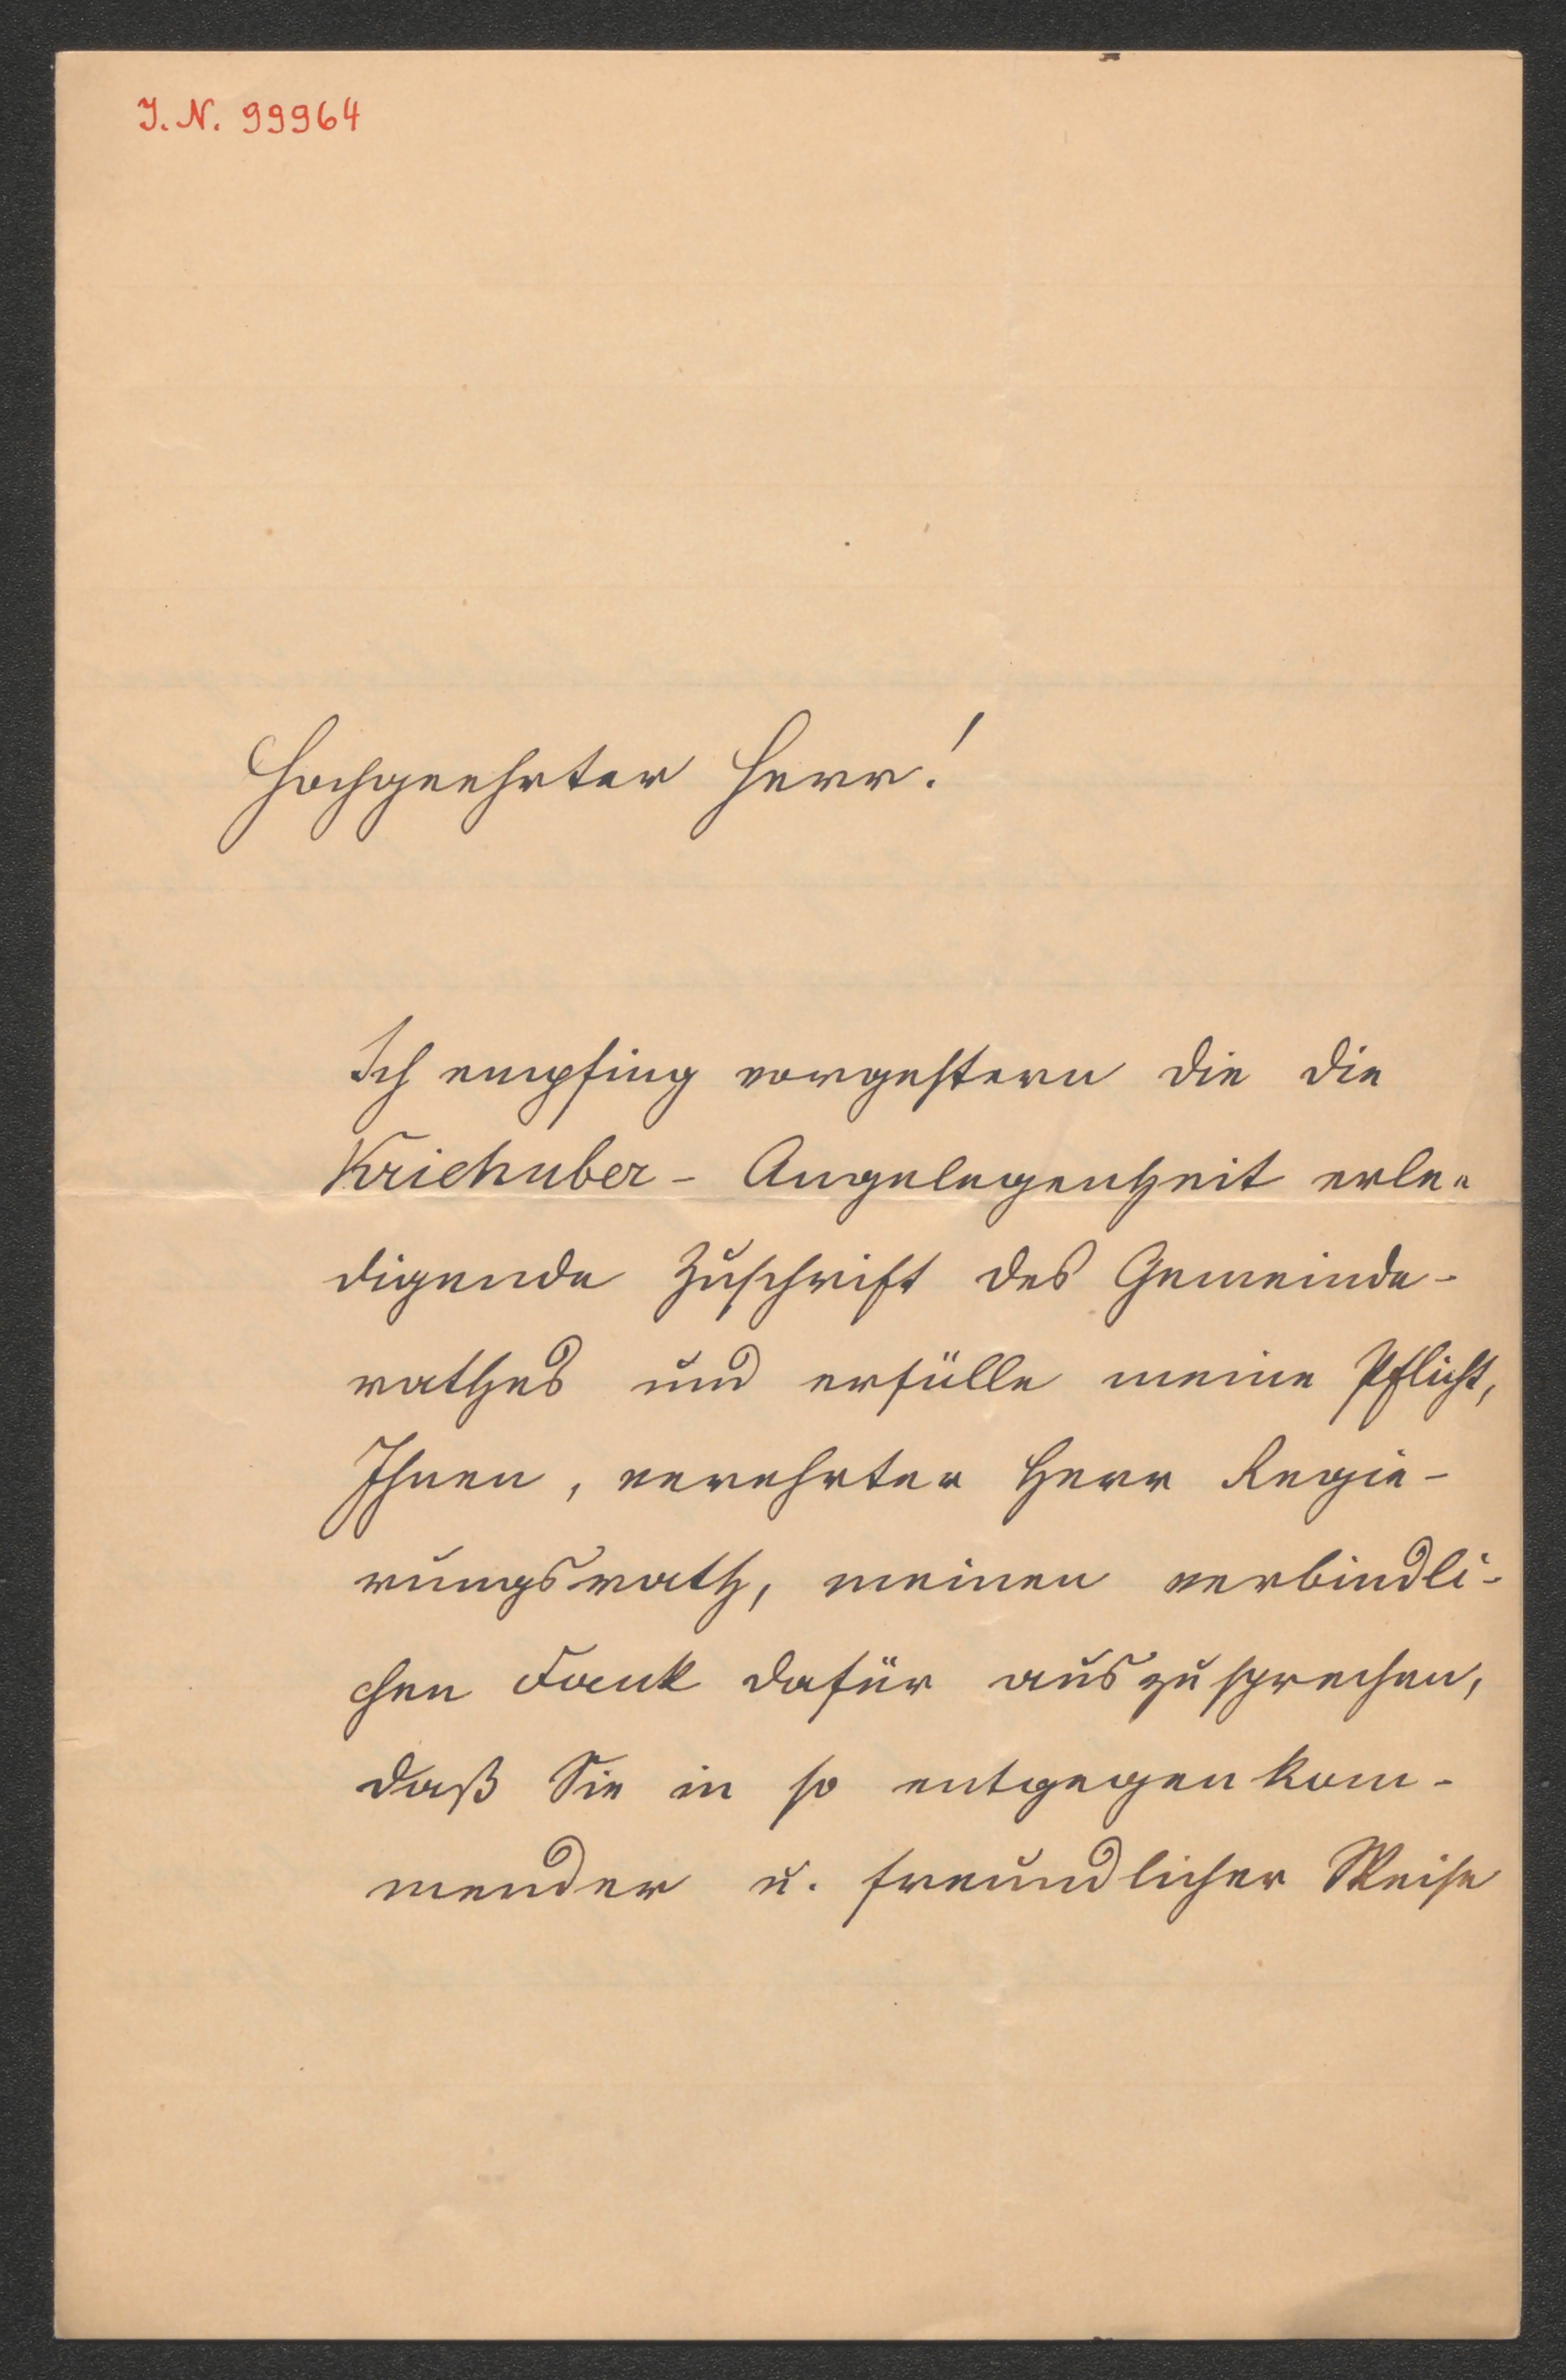 J. N. 99964
Hochgeehrter Herr!
Ich empfing vorgestern die die
Kriehuber - Angelegenheit erle-
digende Zuschrift des Gemeinde-
rathes und erfülle meine Pflicht,
Ihnen, verehrter Herr Regie-
rungsrath, meinen verbindli-
chen Dank dafür auszusprechen,
daß Sie in so entgegenkom-
mender u. freundlicher Weise